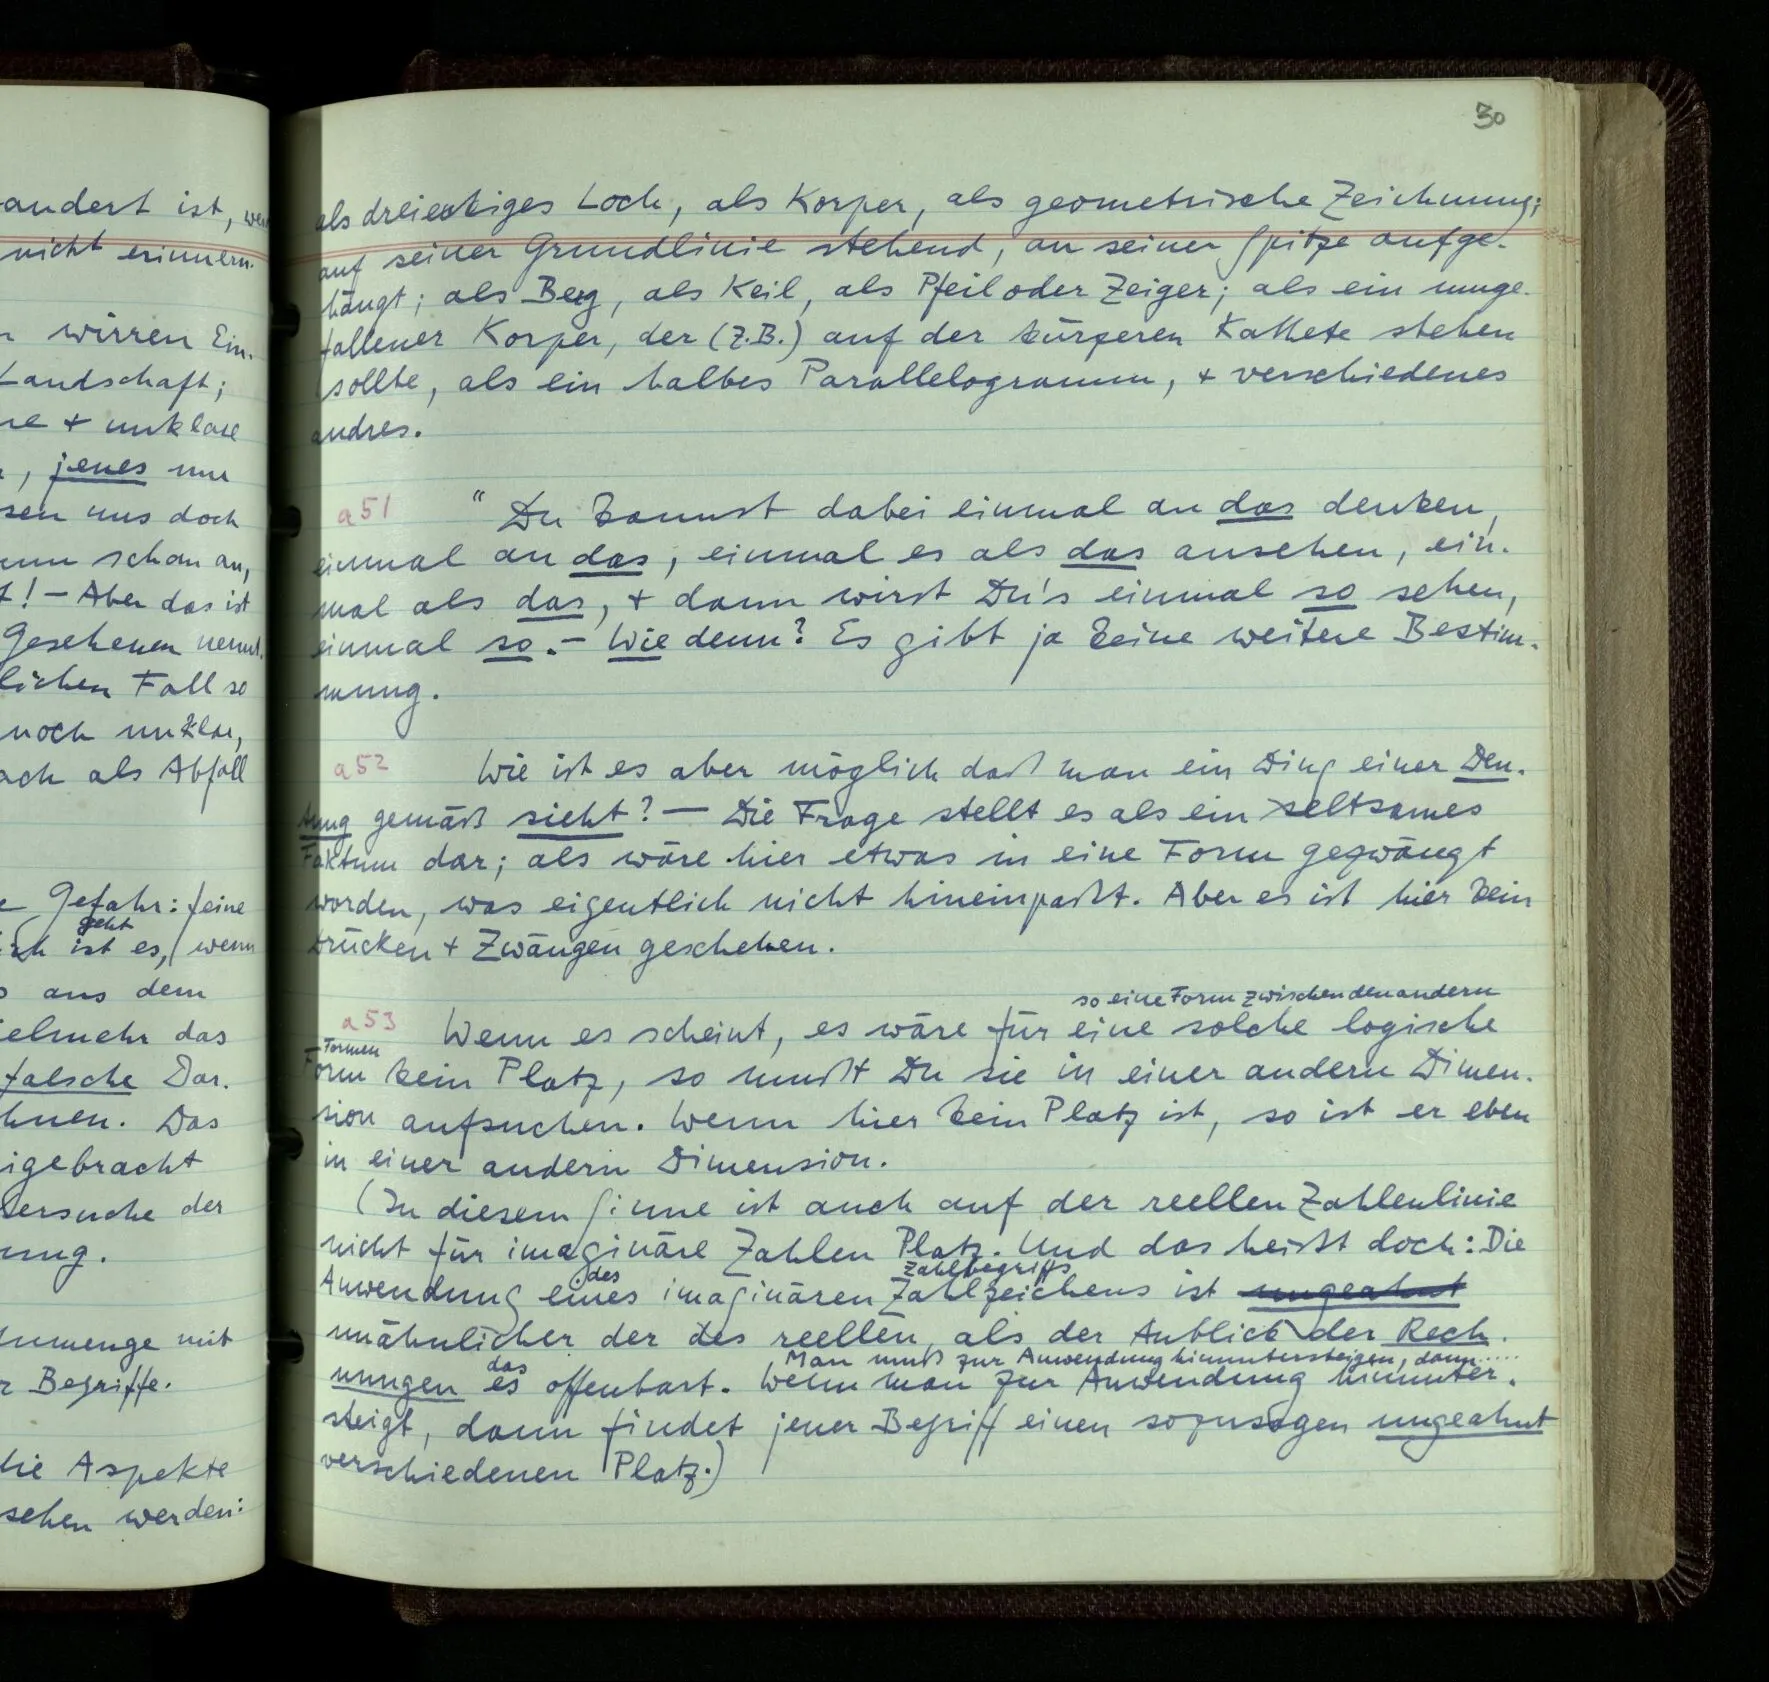 andert ist, wenn
nicht erinnern.
wirren Ein-
Landschaft;
+ unklare
, jenes nur
uns doch
schon an,
! – Aber das ist
Gesehenen nennt.
lichen Fall so
noch unklar,
als Abfall
Gefahr: feine
geht
ist es, wenn
aus dem
ielmehr das
falsche Dar-
hnen. Das
igebracht
Versuche der
ung.
nmenge mit
Begriffe.
die Aspekte
sehen werden:
30
als dreieckiges Loch, als Körper, als geometrische Zeichnung;
auf seiner Grundlinie stehend, an seiner Spitze aufge-
hängt; als Berg, als Keil, als Pfeil oder Zeiger; als ein umge-
fallener Körper, der (z.B.) auf der kürzeren Kathete stehen
sollte, als ein halbes Parallelogramm, + verschiedenes
andres.
a51 "Du kannst dabei einmal an das denken,
einmal an das, einmal es als das ansehen, ein-
mal als das, + dann wirst Du's einmal so sehen,
einmal so. – Wie denn? Es gibt ja keine weitere Bestim-
mung.
a52 Wie ist es aber möglich daß man ein Ding einer Deu-
tung gemäß sieht? – Die Frage stellt es als ein seltsames
Faktum dar; als wäre hier etwas in eine Form gezwängt
worden, was eigentlich nicht hineinpaßt. Aber es ist hier kein
Drücken + Zwängen geschehen.
so eine Form zwischen den andern
a53 Wenn es scheint, es wäre für eine solche logische
Formen
Form kein Platz, so mußt Du sie in einer andern Dimen-
sion aufsuchen. Wenn hier kein Platz ist, so ist er eben
in einer andern Dimension.
(In diesem Sinne ist auch auf der reellen Zahlenlinie
nicht für imaginäre Zahlen Platz. Und das heißt doch: Die
des Zahlbegriffs
Anwendung eines imaginären Zahlzeichens ist ungeahnt
unähnlicher der des reellen, als der Anblick der Rech-
das Man muß zur Anwendung hinuntersteigen, dann.....
nungen es offenbart. Wenn man zur Anwendung hinunter-
steigt, dann findet jener Begriff einen sozusagen ungeahnt
verschiedenen Platz.)